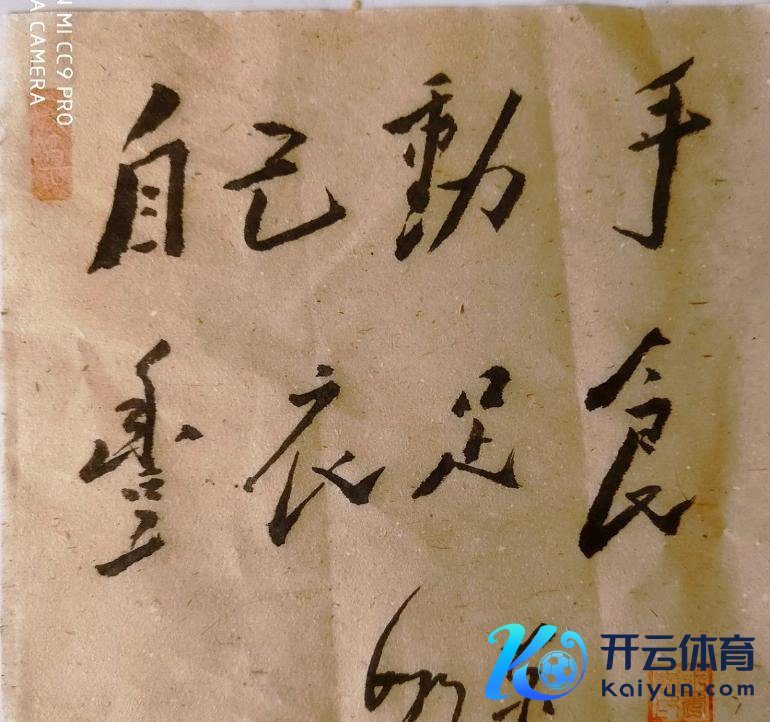 自己動手
豐衣足食
MI CC9 PRO
A CAMERA
开云体育
Kaiyun.com